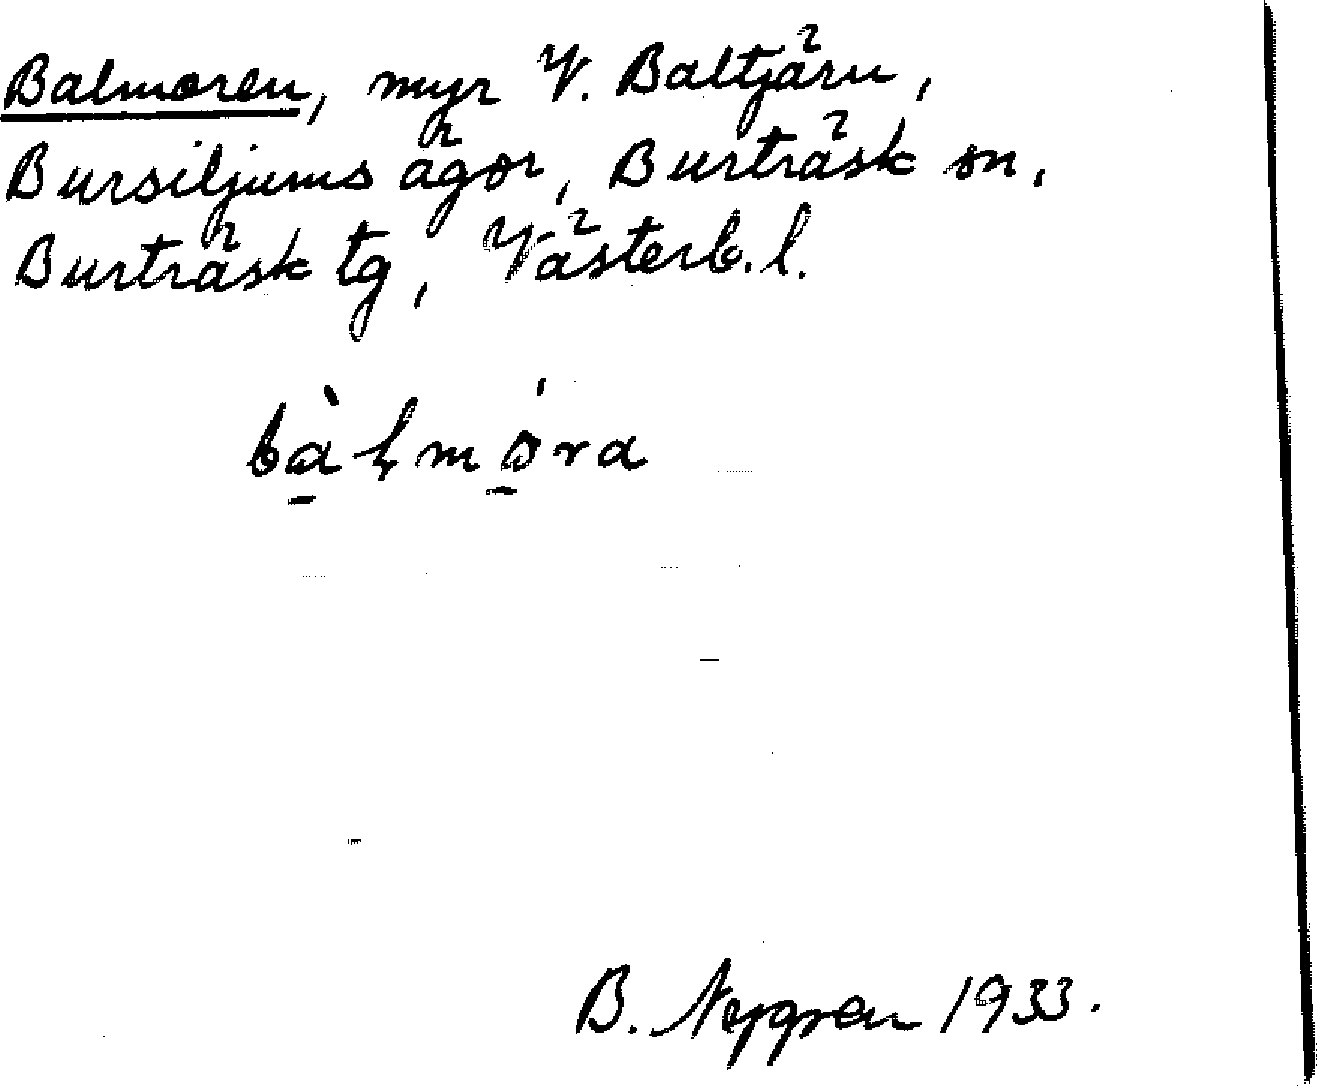 Balmoren, myr V. Baltjärn,
Bursiljums ägor, Burträsk sn,
Burträsk tg, Västerb. l.
bàl̥mǿra
B. Nygren 1933.